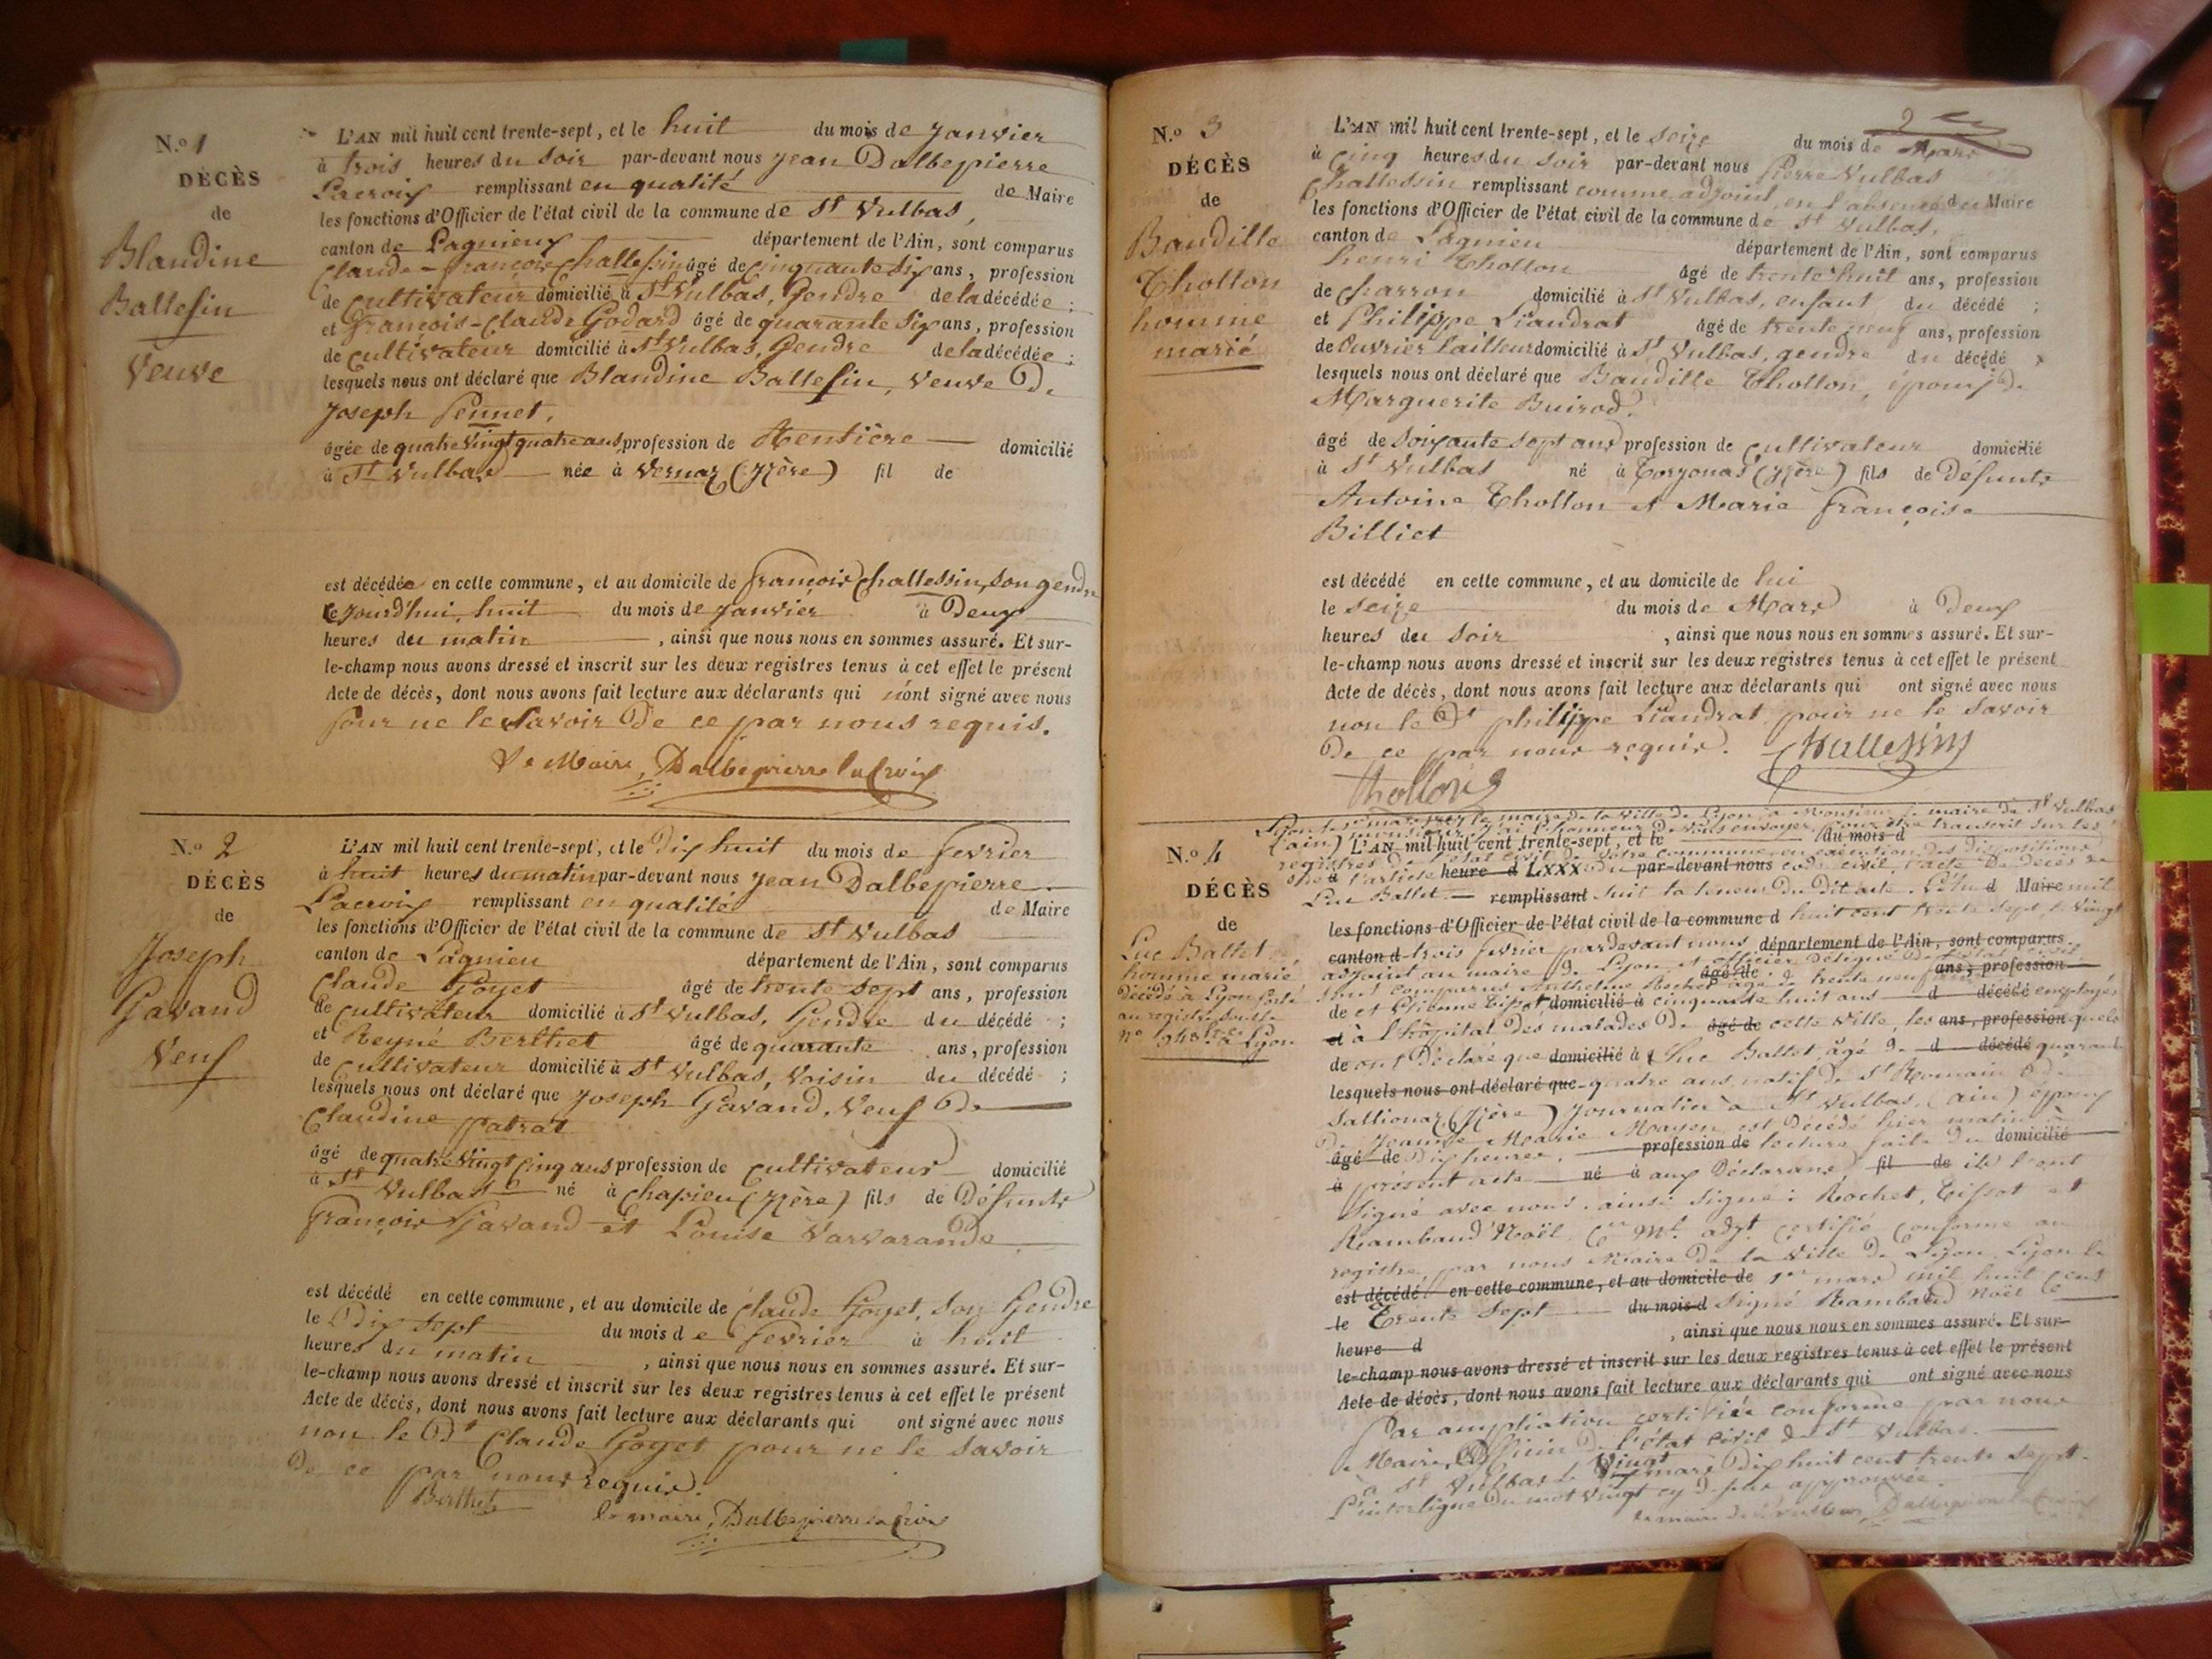 N.o 1
DÉCÈS
de
Blandine
Ballesin
Veuve
L'AN mil huit cent trente-sept, et le huit du mois de Janvier
à trois heures du soir par-devant nous Jean Dalbepierre
Lacroix remplissant en qualité de Maire
les fonctions d'Officier de l'état civil de la commune de St Vulbas,
canton de Lagnieux département de l'Ain, sont comparus
Claude-françois Challessin âgé de cinquante six ans, profession
de cultivateur domicilié à St Vulbas, Gendre de la décédée ;
et françois-Claude Godard âgé de quarante six ans, profession
de cultivateur domicilié à St Vulbas, Gendre de la décédée ;
lesquels nous ont déclaré que Blandine Ballesin, veuve De
Joseph Pennet,
âgée de quatre vingt quatre ans, profession de Rentière domicilié
à St Vulbas née à Vernaz (Yzère) fil de
est décédée en cette commune, et au domicile de françois Challessin, son gendre
cejourd'hui, huit du mois de Janvier à Deux
heures du matin , ainsi que nous nous en sommes assuré. Et sur-
le-champ nous avons dressé et inscrit sur les deux registres tenus à cet effet le présent
Acte de décès, dont nous avons fait lecture aux déclarants qui n'ont signé avec nous
pour ne le savoir De ce par nous requis.
Le Maire, Dalbepierre laCroix
N.o 2
DÉCÈS
de
Joseph
Gavand
Veuf
L'AN mil huit cent trente-sept, et le dix huit du mois de fevrier
à huit heures du matin par-devant nous Jean Dalbepierre
Lacroix remplissant en qualité de Maire
les fonctions d'Officier de l'état civil de la commune de St Vulbas
canton de Lagnieu département de l'Ain, sont comparus
Claude Goyet âgé de trente sept ans, profession
de cultivateur domicilié à St Vulbas, Gendre du décédé ;
et Reyné Berthet âgé de quarante ans, profession
de cultivateur domicilié à St Vulbas, Voisin du décédé ;
lesquels nous ont déclaré que Joseph Gavand, Veuf De
Claudine patrat
âgé de quatre vingt cinq ans profession de cultivateur domicilié
à St Vulbas né à Chapieu (Yzère) fils de Défunts
françois Gavand et Louise Varvarande
est décédé en cette commune, et au domicile de Claude Goyet, son Gendre
le Dix sept du mois de fevrier à huit
heures du matin , ainsi que nous nous en sommes assuré. Et sur-
le-champ nous avons dressé et inscrit sur les deux registres tenus à cet effet le présent
Acte de décès, dont nous avons fait lecture aux déclarants qui ont signé avec nous
non le Dt Claude Goyet pour ne le savoir
De ce par nous requis.
Berthet
le maire, Dalbepierre la Croix
2
N.o 3
DÉCÈS
de
Baudille
Thollon
homme
marié
L'AN mil huit cent trente-sept, et le seize du mois de Mars
à cinq heures du soir par-devant nous Pierre Vulbas
Challessin remplissant comme adjoint, en l'absence du Maire
les fonctions d'Officier de l'état civil de la commune de St Vulbas,
canton de Lagnieu département de l'Ain, sont comparus
henri Thollon âgé de trente huit ans, profession
de charron domicilié à St Vulbas, enfant du décédé ;
et Philippe Liandrat âgé de trente neuf ans, profession
de Ouvrier tailleur domicilié à St Vulbas, gendre du décédé
lesquels nous ont déclaré que Baudille Thollon, époux De
Marguerite Buirod
âgé de soixante sept ans profession de cultivateur domicilié
à St Vulbas né à Corzonas (Yzère) fils de Défunts
Antoine Thollon et Marie françoise
Billiet
est décédé en cette commune, et au domicile de lui
le seize du mois de Mars à Deux
heures du soir , ainsi que nous nous en sommes assuré. Et sur-
le-champ nous avons dressé et inscrit sur les deux registres tenus à cet effet le présent
Acte de décès, dont nous avons fait lecture aux déclarants qui ont signé avec nous
non le Dt philippe Liandrat, pour ne le savoir
De ce par nous requis. Challessin
Thollon
N.o 4
DÉCÈS
de
Luc Ballet
homme marié
décédé à Lyon porté
au registre
no à Lyon
Lyon le mars le maire de la Ville de Lyon, à Monsieur le maire de St Vulbas
(ain) monsieur j'ai l'honneur de vous envoyer, pour être transcrit sur les
L'AN mil huit cent trente-sept, et le du mois d
registres de l'état civil de votre commune, en exécution des dispositions
de l'article heure d LXXX du par-devant nous code civil, l'acte De décès de
Luc Ballet remplissant suit la teneur Du dit acte. L'an d Maire mil
les fonctions d'Officier de l'état civil de la commune d huit cent trente sept, le vingt
canton d trois fevrier pardevant nous département de l'Ain, sont comparus
adjoint au maire De Lyon et officier délégué De l'état civil
sont comparus Anthelme Rochet âgé de trente neuf ans, profession
de et Etienne Tissot, domicilié à cinquante huit ans d décédé employés
et à l'hôpital Des malades De âgé de cette Ville, les ans, profession quels
de ont Déclaré que domicilié à Luc Ballet, âgé De d décédé quarante
lesquels nous ont déclaré que quatre ans, natif de St Romain De
Sallionaz (Yzère) journalier à St Vulbas, (ain) époux
De Jeanne Marie Mayen est Décédé hier matin à
âgé de Dix heures. profession de lecture faite du domicilié
à présent acte né à aux Déclarans, fil de ils l'ont
Signé avec nous. ainsi signé : Rochet, Tissot et
Rambaud Noël, adjt. Certifié Conforme au
registre, par nous Maire De la Ville De Lyon. Lyon le
est décédé en cette commune, et au domicile de 1er mars mil huit Cent
le Trente sept du mois d signé Rambaud Noël
heure d , ainsi que nous nous en sommes assuré. Et sur-
le-champ nous avons dressé et inscrit sur les deux registres tenus à cet effet le présent
Acte de décès, dont nous avons fait lecture aux déclarants qui ont signé avec nous
Par ampliation certifiée conforme par nous
Maire, Officier De l'état civil De St Vulbas.
à St Vulbas le Vingt mars Dix huit cent trente sept.
L'interligne Du mot vingt cy Dessus approuvée
le maire de St Vulbas, Dalbepierre lacroix